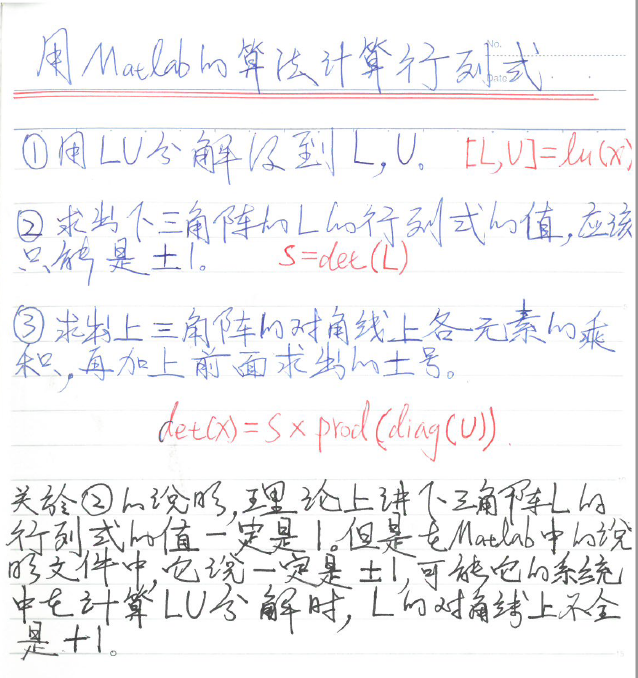 用Matlab的算法计算行列式
No.
Date
①用LU分解得到L,U。 [L,U]=lu(x)
②求出下三角阵的L的行列式的值,应该
只能是±1。 S=det(L)
③求出上三角阵的对角线上各元素的乘
积,再加上前面求出的±号。
det(x)=S×prod(diag(U)).
关於②的说明,理论上讲下三角阵L的
行列式的值一定是1。但是在Matlab中的说
明文件中,它说一定是±1,可能它的系统
中在计算LU分解时,L的对角线上不全
是+1。